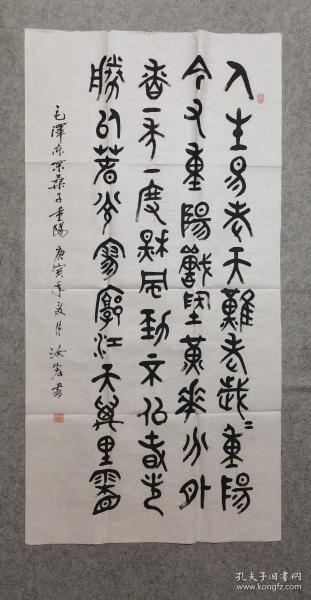 人生易老天難老歲〻重陽
今又重陽戰地黃華分外
香一年一度秋風勁不似春光
勝似春光寥廓江天萬里霜
毛澤東采桑子重陽 庚寅年夏月 汝書
孔夫子旧书网